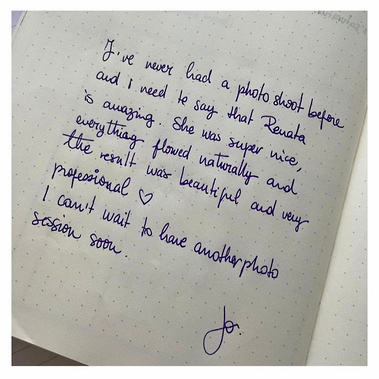 I've never had a photo shoot before
and i need to say that Renata
is amazing. She was super nice,
everything flowed naturally and
the result was beautiful and very
professional ♡
I can't wait to have another photo
session soon.
Jo.